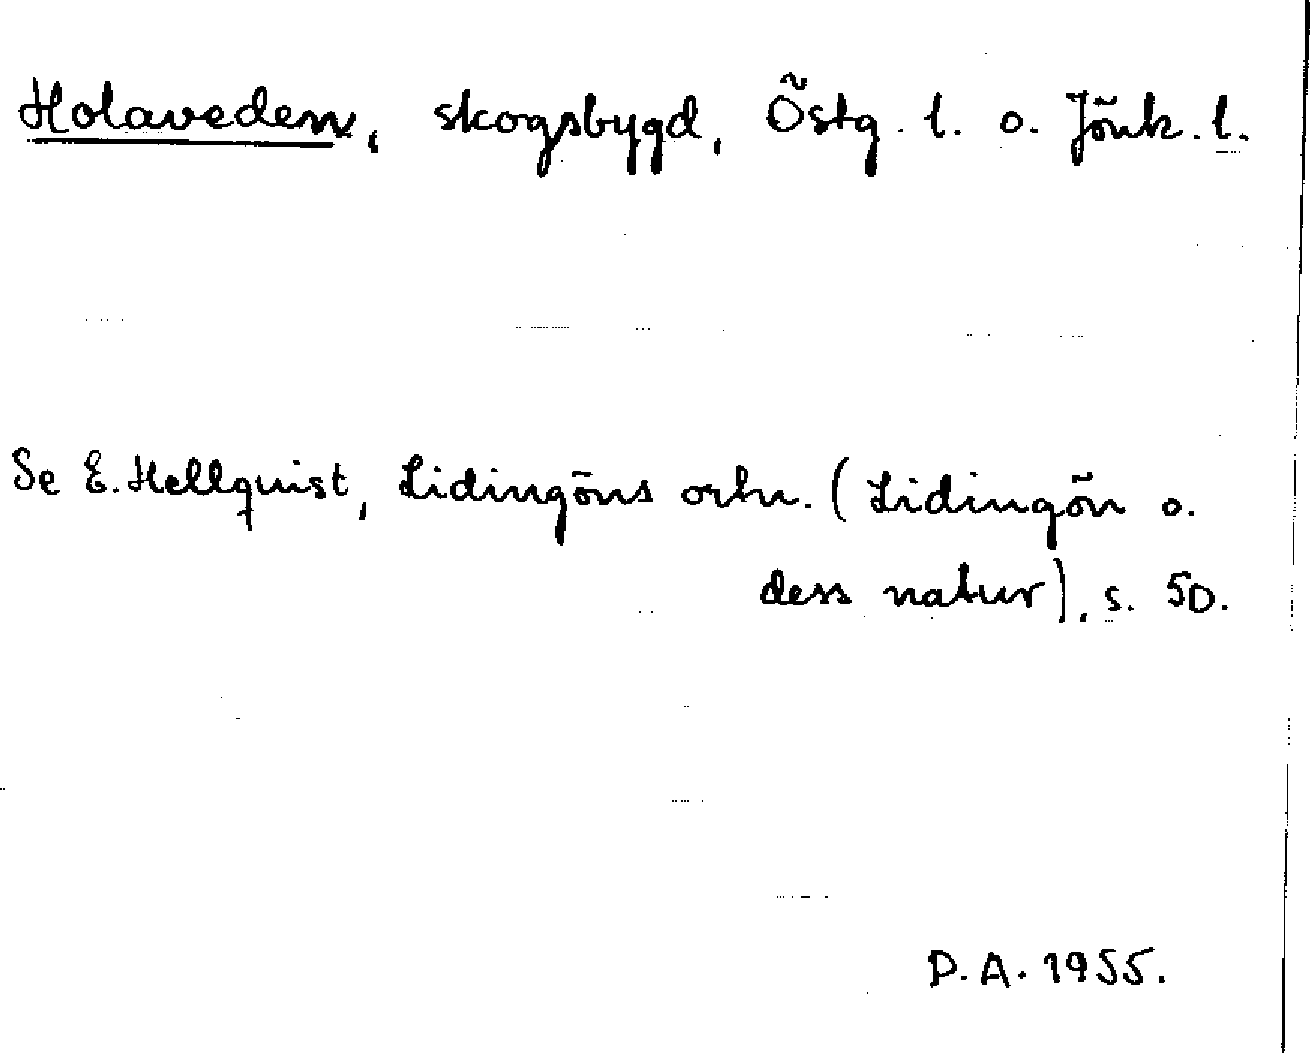 Holaveden, skogsbygd, Östg. l. o. Jönk. l.
Se E. Hellquist, Lidingöns ortn. (Lidingön o.
dess natur), s. 50.
D. A. 1955.